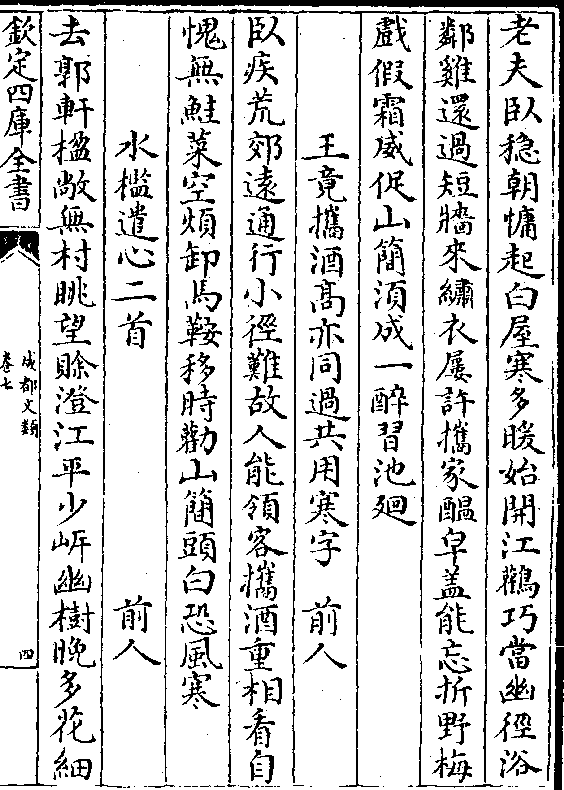 老夫臥穏朝慵起白屋寒多暖始開江鸛巧當幽徑浴
鄰雞還過短牆來繡衣屢許攜家醖皁盖能忘折野梅
戲假霜威促山簡須成一醉習池廻
王竟攜酒髙亦同過共用寒字　前人
臥疾荒郊遠通行小徑難故人能領客攜酒重相看自
愧無鮭菜空煩卸馬鞍移時勸山簡頭白恐風寒
水檻遣心二首　前人
去郭軒楹敞無村眺望賖澄江平少㟁幽樹晚多花細
欽定四庫全書
成都文類
卷七
四